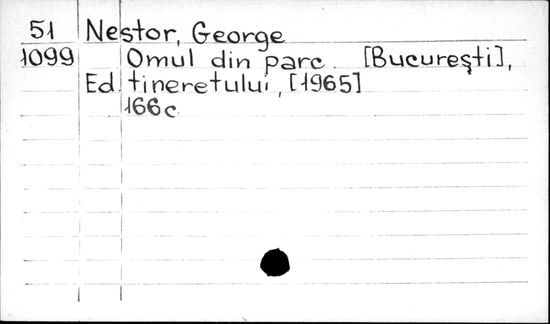 51 Nestor, George
1099 Omul din parc. [Bucureşti],
Ed. tineretului, [1965]
166c.